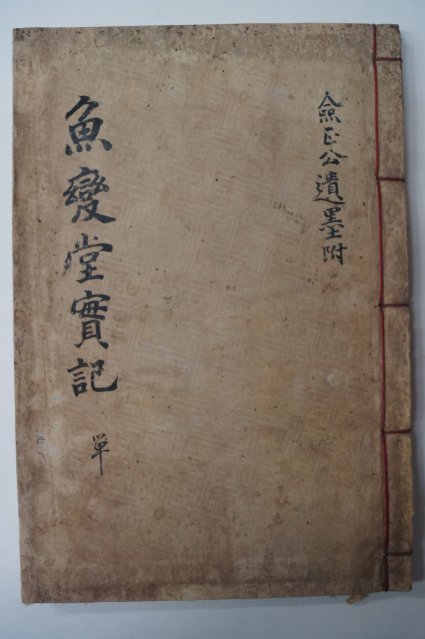 魚變堂實記
單
僉正公遺墨附